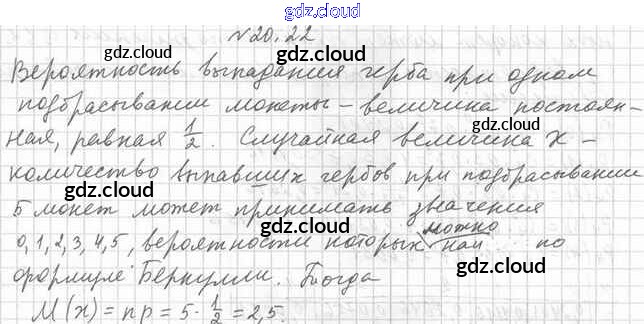 gdz.cloud
№20.22
gdz.cloud
gdz.cloud
Вероятность выпадания герба при одном
подбрасывании монеты – величина постоян-
gdz.cloud
ная, равная 1/2. Случайная величина X –
gdz.cloud
количество выпавших гербов при подбрасывании
5 монет может принимать значения
gdz.cloud
можно
0,1,2,3,4,5, вероятности которых най по
gdz.cloud
формуле Бернулли. Тогда
gdz.cloud
M(x) = np = 5·1/2 = 2,5.
gdz.cloud